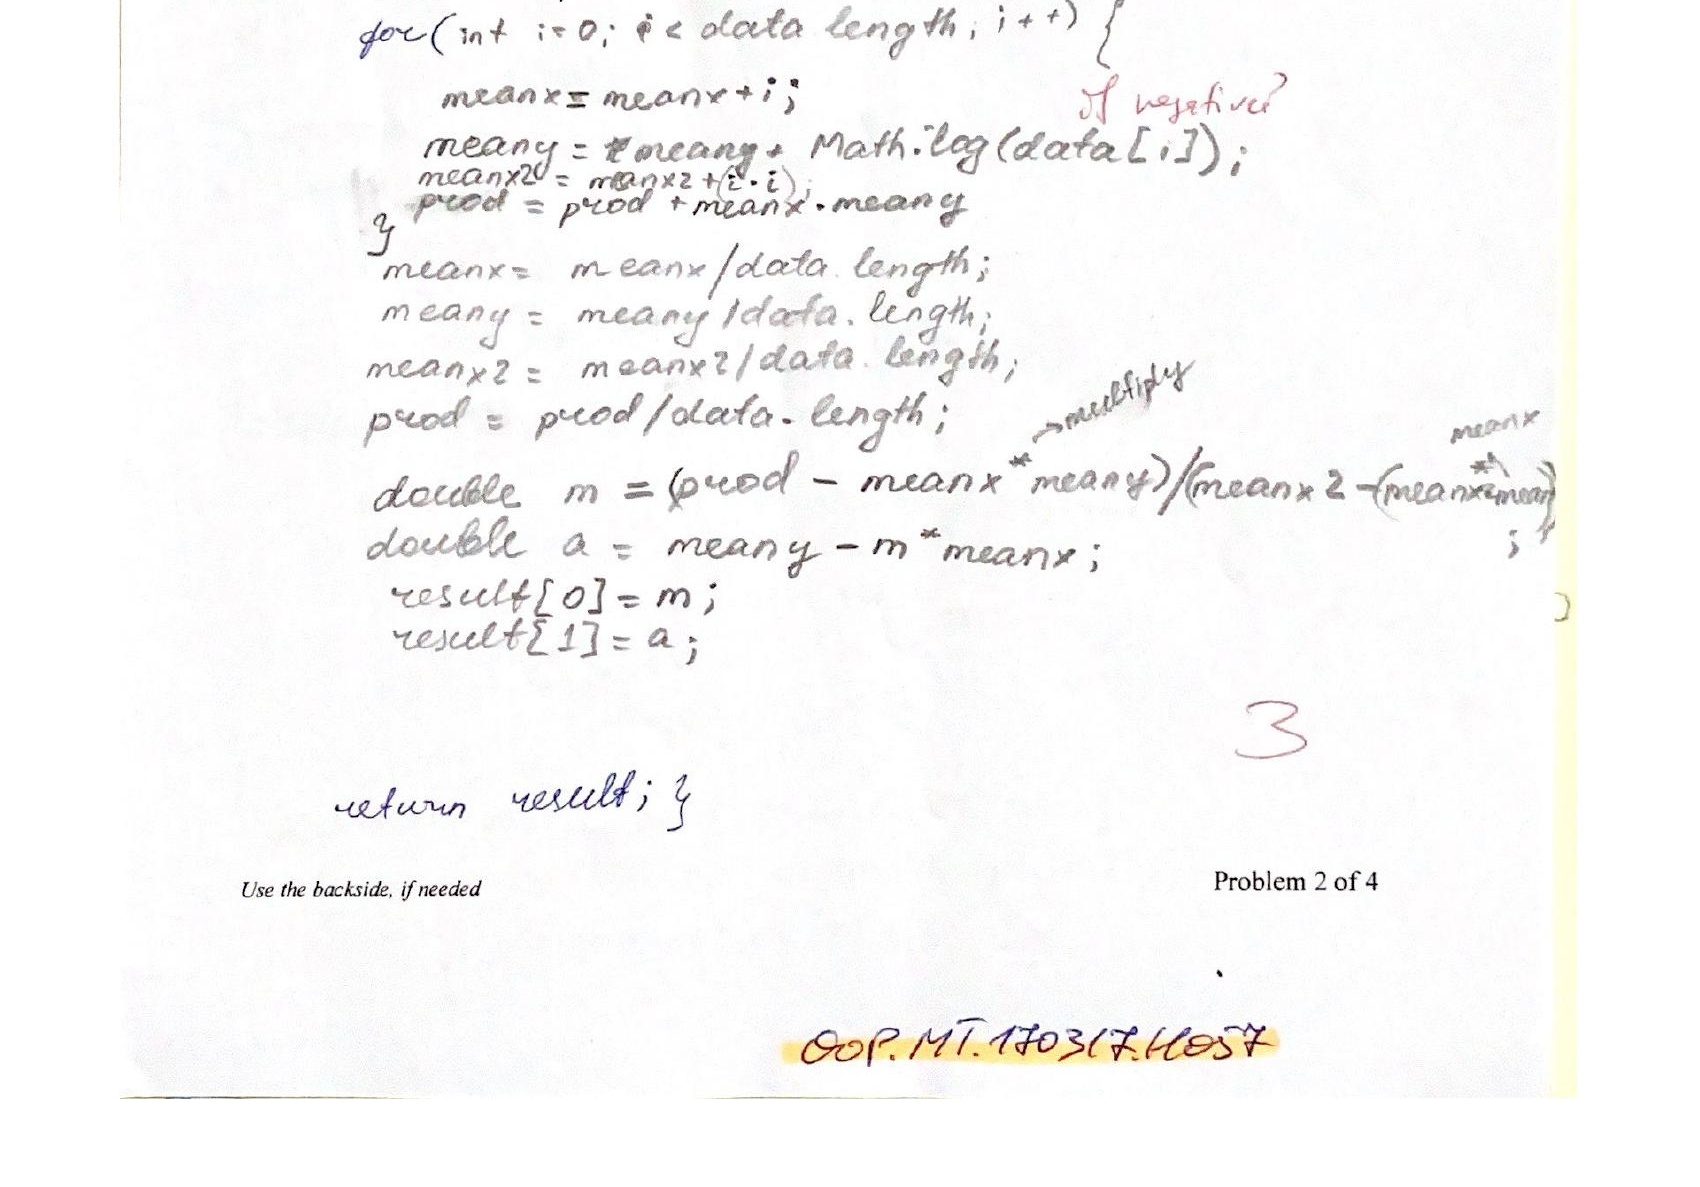 for(int i=0; i < data length; i++) {
meanx = meanx + i;
If negative?
meany = meany + Math.log(data[i]);
meanx2 = meanx2 + (i · i);
prod = prod + meanx · meany
}
meanx = meanx/data.length;
meany = meany/data.length;
meanx2 = meanx2/data.length;
prod = prod/data.length;
→ multiply
meanx
double m = (prod - meanx * meany)/(meanx2 - (meanx
;
double a = meany - m * meanx;
result[0] = m;
result[1] = a;
3
return result; }
Use the backside, if needed
Problem 2 of 4
OOP.MT.170317.H057